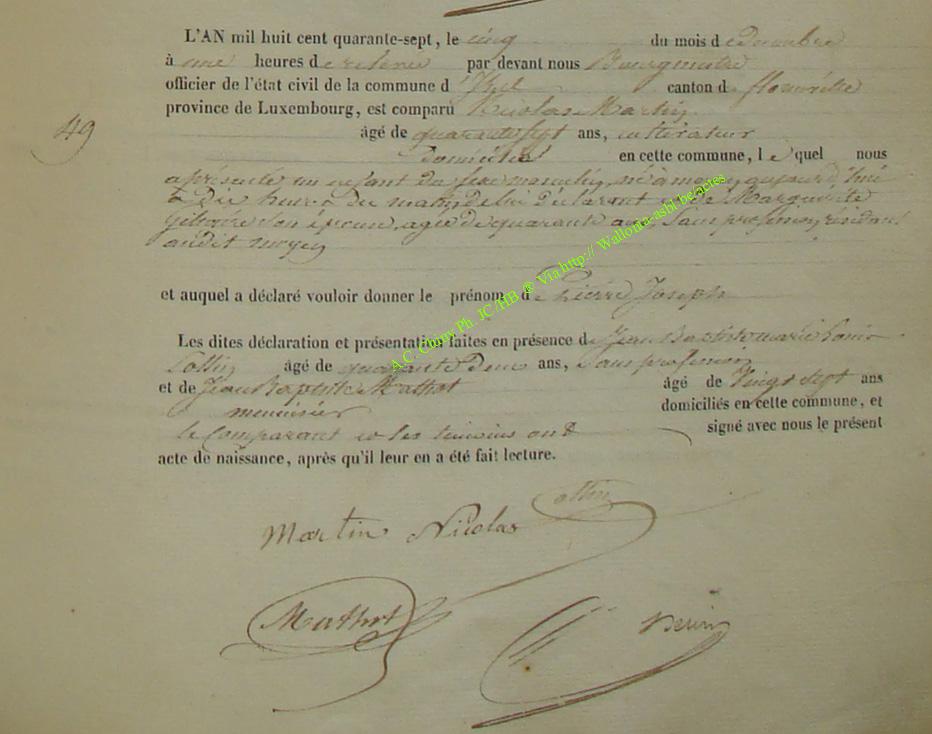 L'AN mil huit cent quarante-sept, le cinq du mois d e décembre
à une heures d e relevée par devant nous Bourgmestre
officier de l'état civil de la commune d' Izel canton d e florenville
province de Luxembourg, est comparu Nicolas Martin
49
âgé de quarante sept ans, cultivateur
domicilié en cette commune, l e quel nous
a présenté un enfant du sexe masculin, né à moyen aujourd'hui
à dix heures du matin de lui déclarant et de Marguerite
son épouse, agée de quarante ans, sans profession, résidant
audit moyen
et auquel a déclaré vouloir donner le prénom d e Pierre Joseph
Les dites déclaration et présentation faites en présence d e Jean Baptiste marie Louis
Collin âgé de quarante deux ans, sans profession
et de Jean Baptiste Mathot âgé de vingt sept ans
menuisier domiciliés en cette commune, et
le Comparant et les témoins ont signé avec nous le présent
acte de naissance, après qu'il leur en a été fait lecture.
Collin
Martin Nicolas
Mathot
A.C. Chiny Ph. IC/HB ® Via http:// Wallonia-asbl.be/actes